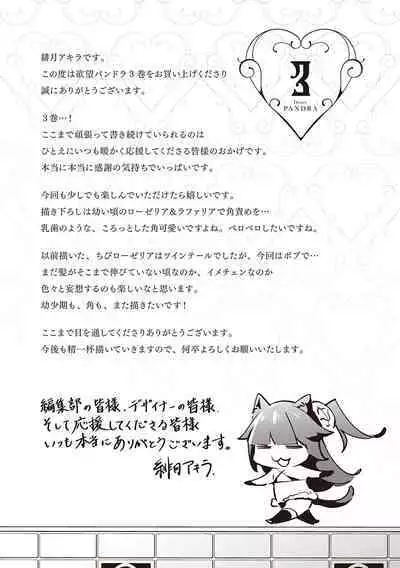 緋月アキラです。
この度は欲望パンドラ3巻をお買い上げくださり
誠にありがとうございます。
3巻…!
ここまで頑張って書き続けていられるのは
ひとえにいつも暖かく応援してくださる皆様のおかげです。
本当に本当に感謝の気持ちでいっぱいです。
今回も少しでも楽しんでいただけたら嬉しいです。
描き下ろしは幼い頃のローゼリア&ラファリアで角責めを…
乳歯のような、ころっとした角可愛いですよね。ペロペロしたいですね。
以前描いた、ちびロゼリアはツインテールでしたが、今回はボブで…
まだ髪がそこまで伸びていない頃なのか、イメチェンなのか
色々と妄想するのも楽しいなと思います。
幼少期も、角も、また描きたいです!
ここまで目を通してくださりありがとうございます。
今後も精一杯描いていきますので、何卒よろしくお願いいたします。
3
Desire
PANDRA
編集部の皆様、デザイナーの皆様
そして応援してくださる皆様
いつも本当にありがとうございます。
緋月アキラ